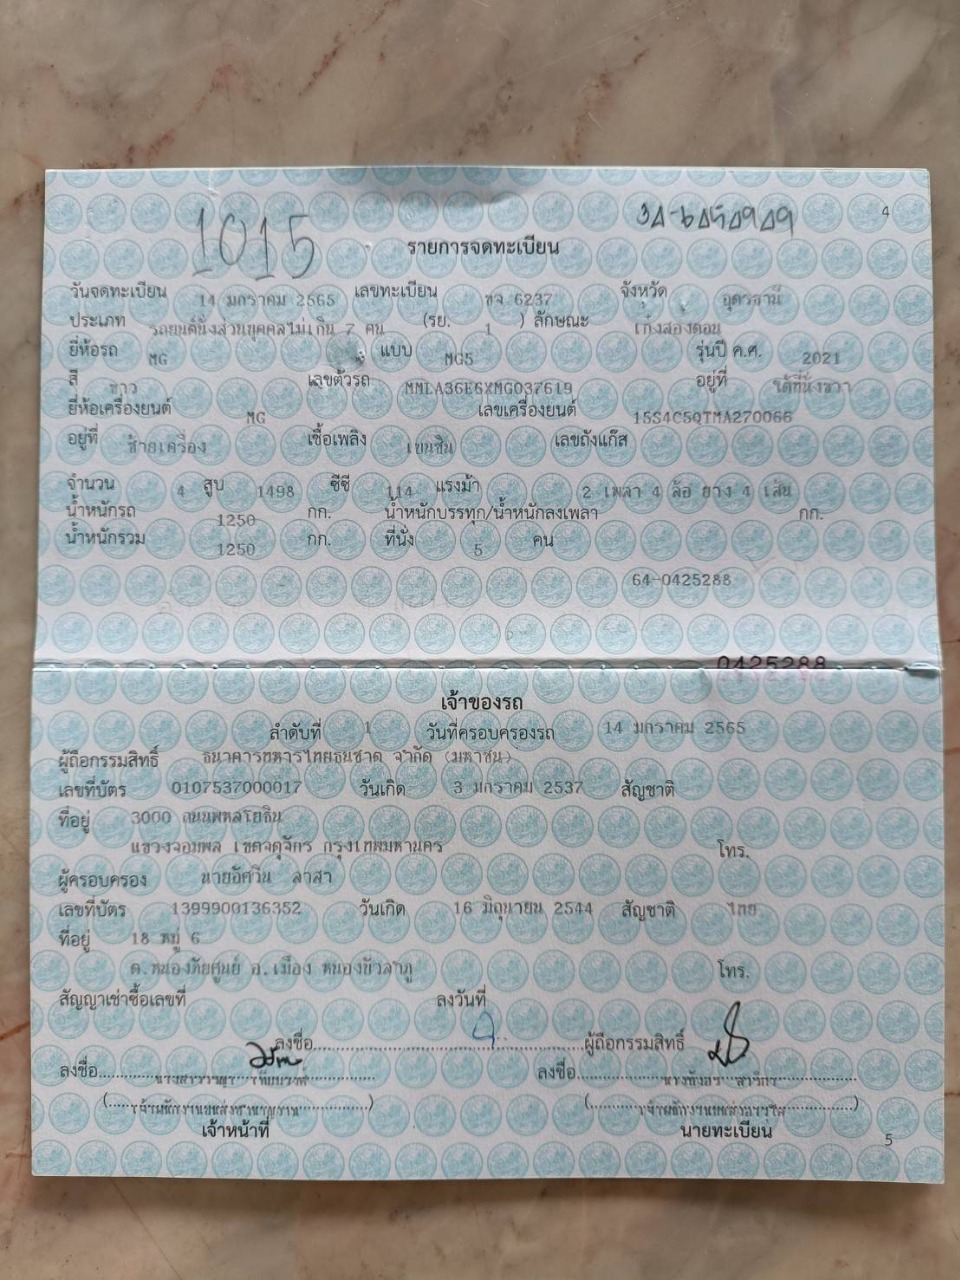 4
1015
รายการจดทะเบียน
วันจดทะเบียน 14 มกราคม 2565 เลขทะเบียน ขจ 6237 จังหวัด อุดรธานี
ประเภท รถยนต์นั่งส่วนบุคคลไม่เกิน 7 คน (รย. 1 ) ลักษณะ เก๋งสองตอน
ยี่ห้อรถ MG แบบ MG5 รุ่นปี ค.ศ. 2021
สี ขาว เลขตัวรถ MMLA36E6XMG037619 อยู่ที่ ใต้ที่นั่งขวา
ยี่ห้อเครื่องยนต์ MG เลขเครื่องยนต์ 15S4C5QTMA270066
อยู่ที่ ซ้ายเครื่อง เชื้อเพลิง เบนซิน เลขถังแก๊ส
จำนวน 4 สูบ 1498 ซีซี 114 แรงม้า 2 เพลา 4 ล้อ ยาง 4 เส้น
น้ำหนักรถ 1250 กก. น้ำหนักบรรทุก/น้ำหนักลงเพลา กก.
น้ำหนักรวม 1250 กก. ที่นั่ง 5 คน
64-0425288
0425288
เจ้าของรถ
ลำดับที่ 1 วันที่ครอบครองรถ 14 มกราคม 2565
ผู้ถือกรรมสิทธิ์ ธนาคารทหารไทยธนชาต จำกัด (มหาชน)
เลขที่บัตร 0107537000017 วันเกิด 3 มกราคม 2537 สัญชาติ
ที่อยู่ 3000 ถนนพหลโยธิน
แขวงจอมพล เขตจตุจักร กรุงเทพมหานคร โทร.
ผู้ครอบครอง นายอัศวิน ลาสา
เลขที่บัตร 1399900136352 วันเกิด 16 มิถุนายน 2544 สัญชาติ ไทย
ที่อยู่ 18 หมู่ 6
ต.หนองภัยศูนย์ อ.เมือง หนองบัวลำภู โทร.
สัญญาเช่าซื้อเลขที่ ลงวันที่
ลงชื่อ ผู้ถือกรรมสิทธิ์
ลงชื่อ ลงชื่อ
เจ้าหน้าที่ นายทะเบียน
5